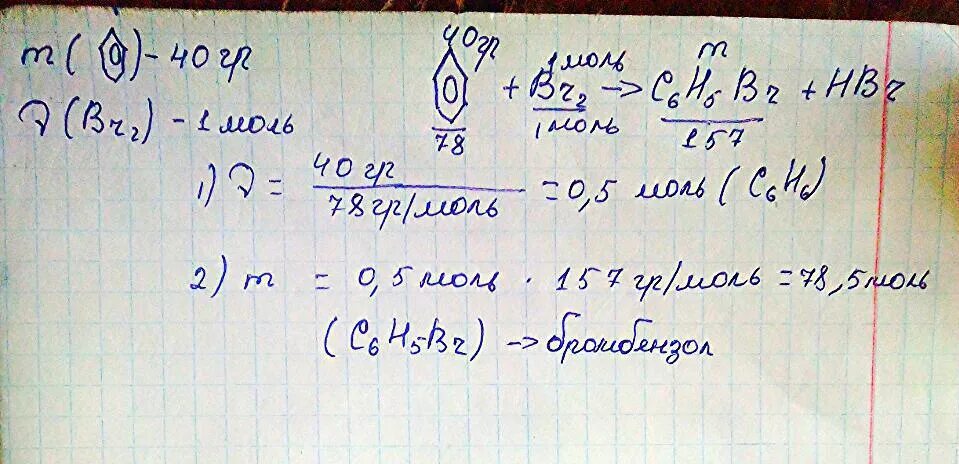 m(⌬) - 40 гр
ν(Br₂) - 1 моль
40 гр 1 моль m
⌬ + Br₂ -> C₆H₅Br + HBr
78 1 моль 157
1) ν = 40 гр / 78 гр/моль = 0,5 моль (C₆H₆)
2) m = 0,5 моль · 157 гр/моль = 78,5 моль
(C₆H₅Br) -> бромбензол